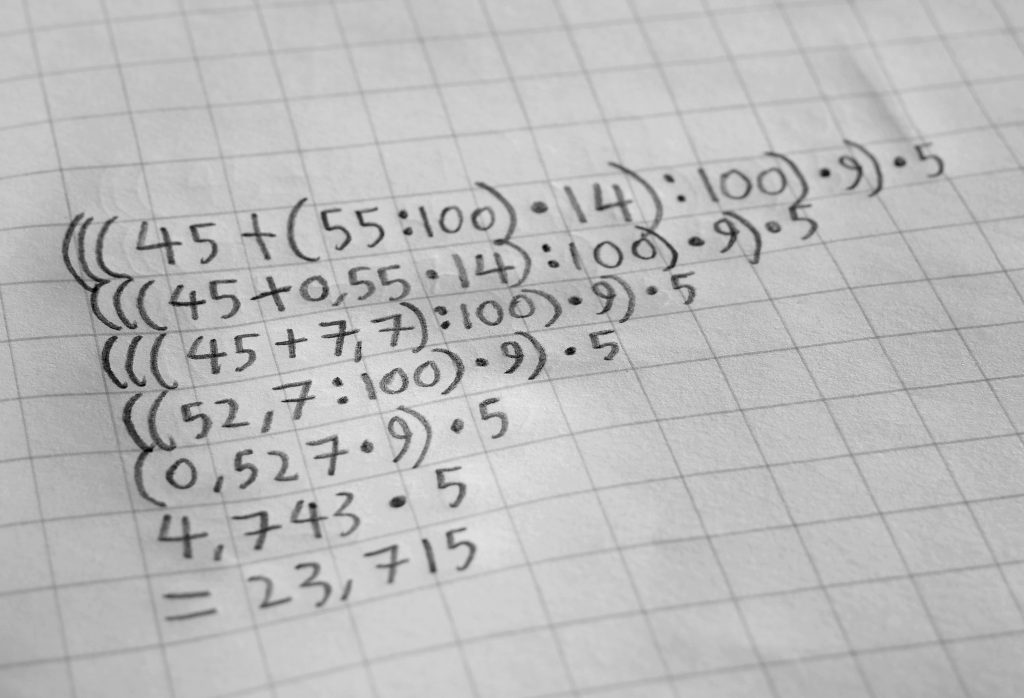 (((45+(55:100)·14):100)·9)·5
(((45+0,55·14):100)·9)·5
(((45+7,7):100)·9)·5
((52,7:100)·9)·5
(0,527·9)·5
4,743·5
=23,715